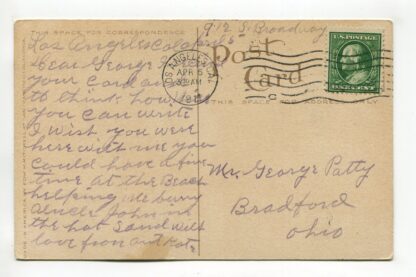 912 S. Broadway
THIS SPACE FOR CORRESPONDENCE
Los Angeles Cal Apr 5
Dear George
your card
to think how
you can write
I wish you were
here with me you
could have a fine
time at the Beach
helping to bury
Uncle John in
the hot Sand with
love from Aunt Kate
Post
Card
THIS SPACE FOR ADDRESS ONLY
LOS ANGELES, CAL.
APR 5
AM
U.S. POSTAGE
ONE CENT
Mr. George Patty
Bradford
Ohio